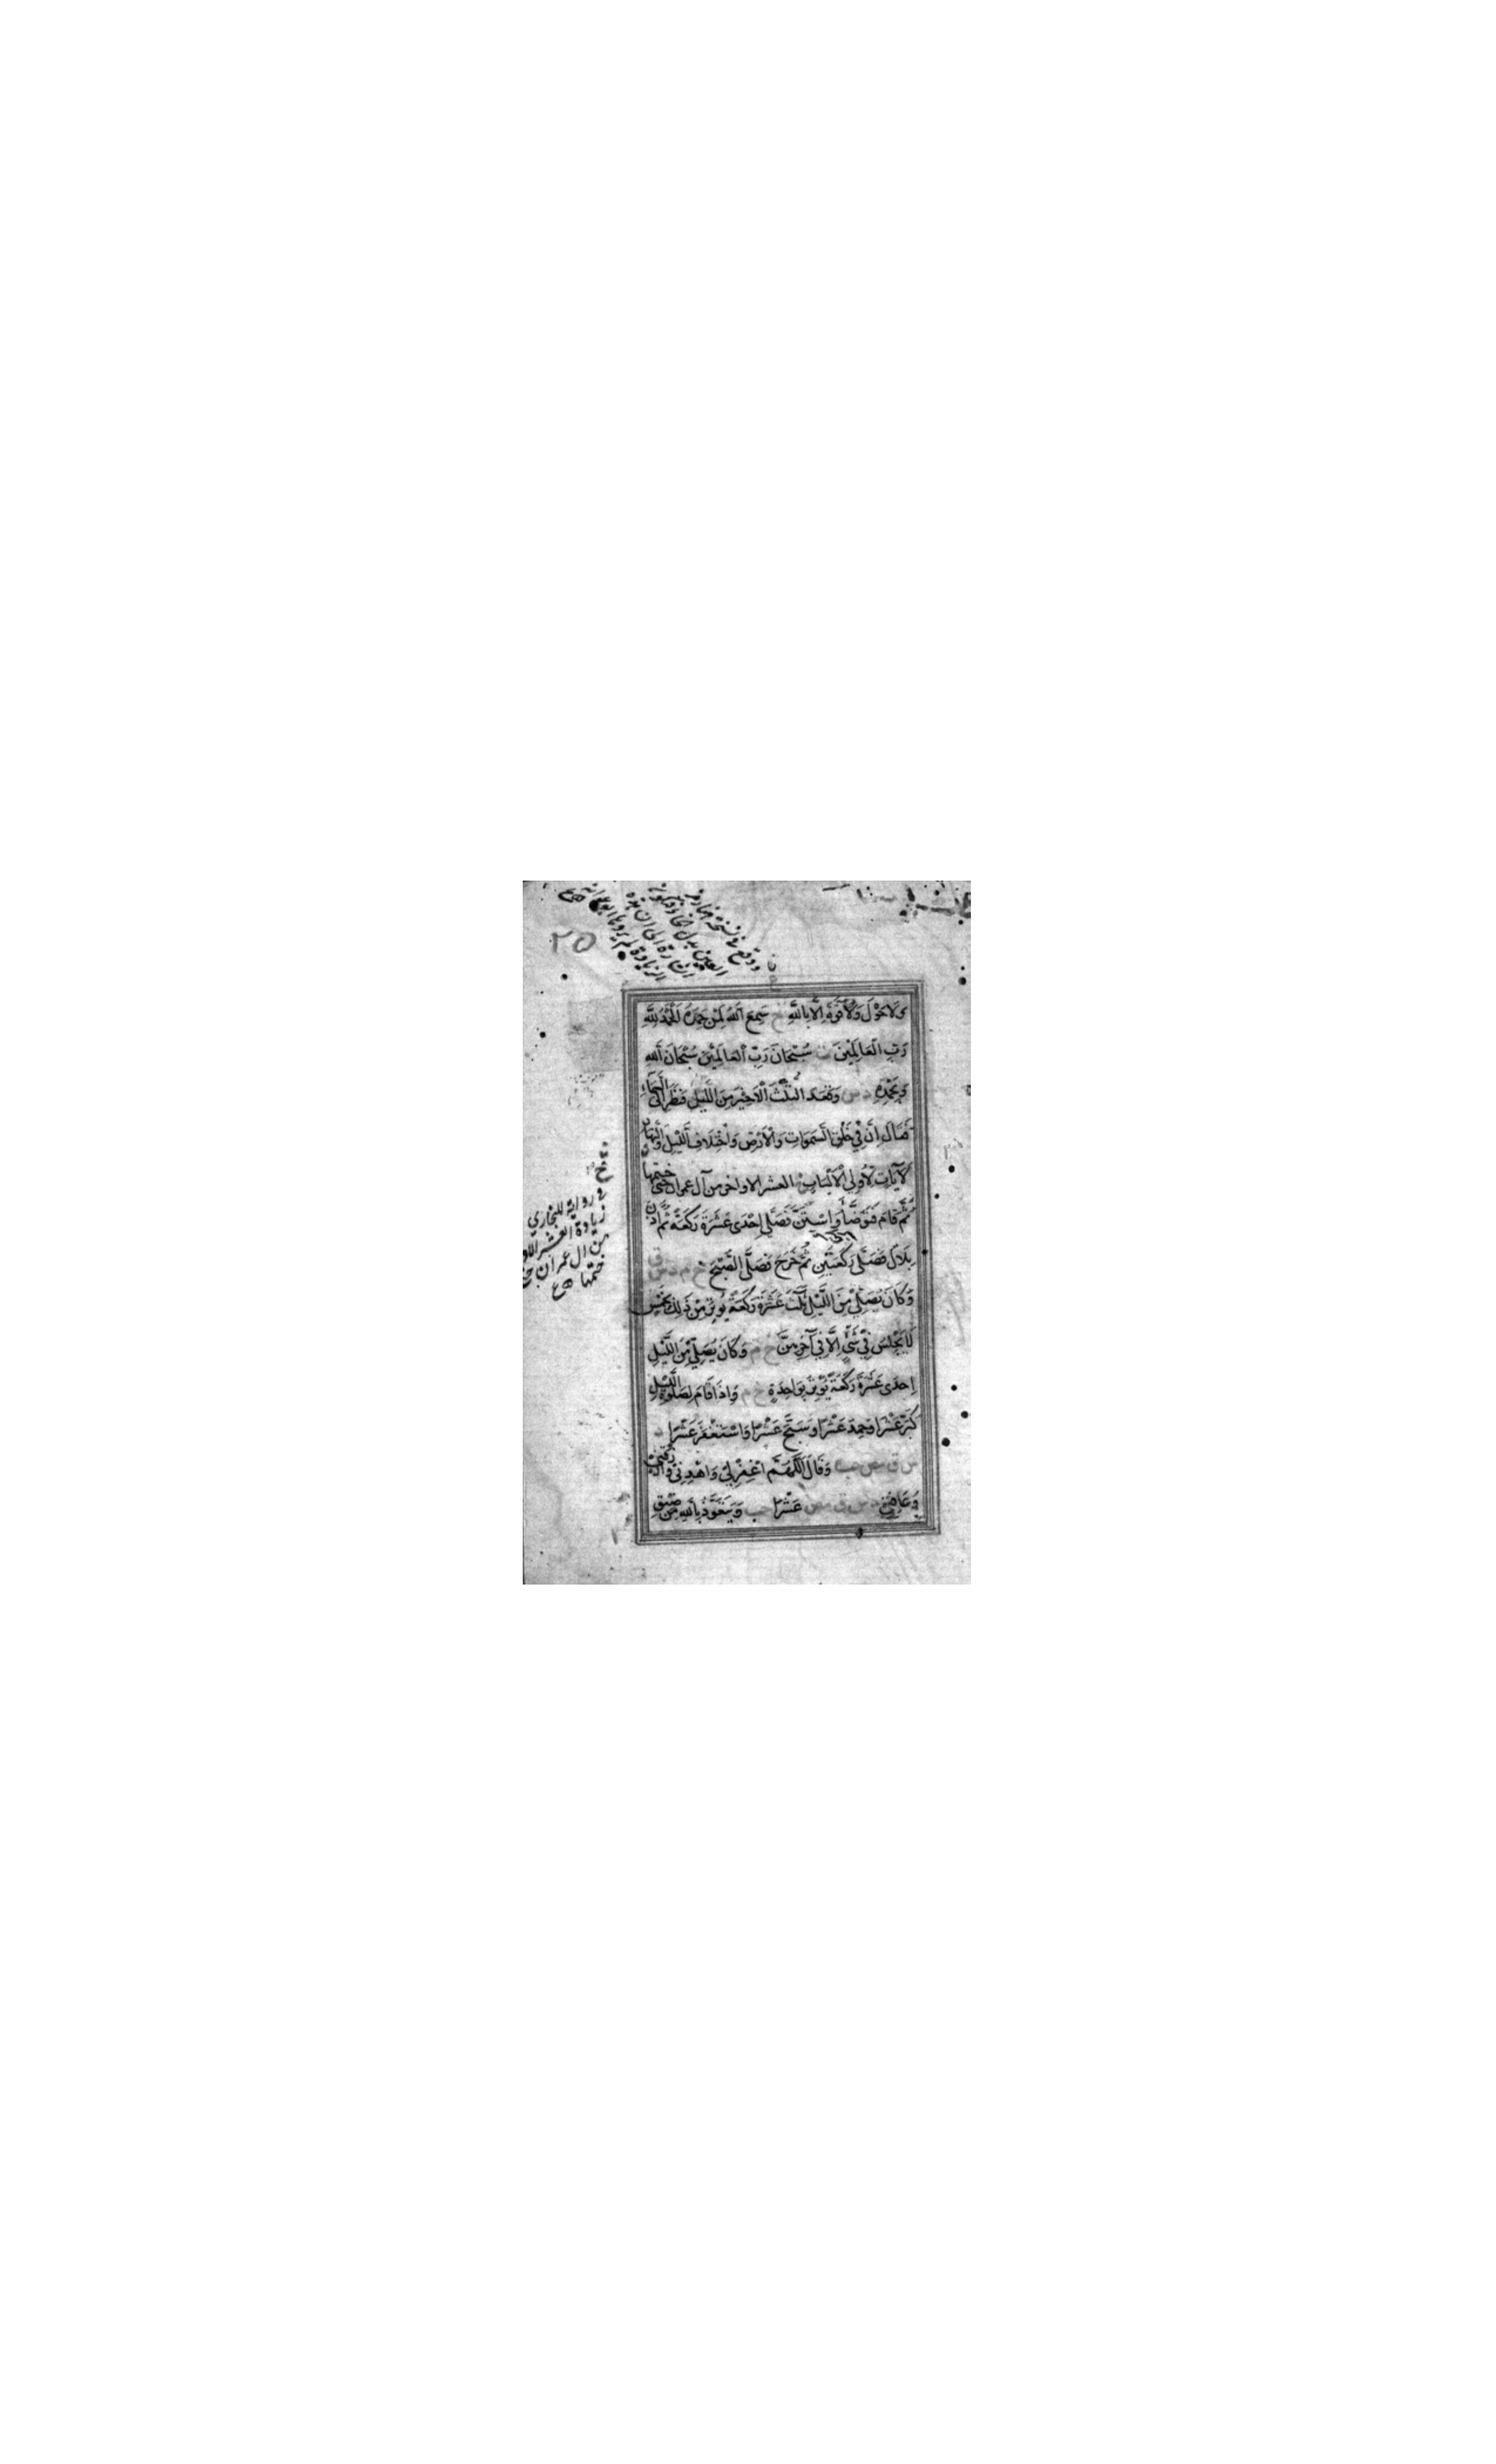 وَلَا حَوْلَ وَلَا قُوَّةَ اِلَّا بِاللّٰهِ خ سَمِعَ اللّٰهُ لِمَنْ حَمِدَهُ اَلْحَمْدُ لِلّٰهِ
رَبِّ الْعَالَمِيْنَ ت سُبْحَانَ رَبِّ الْعَالَمِيْنَ سُبْحَانَ اللّٰهِ
وَبِحَمْدِهِ د س وَقَعَدَ الثُّلُثَ الْاَخِيْرَ مِنَ اللَّيْلِ فَنَظَرَ اِلَى السَّمَاءِ
فَقَالَ اِنَّ فِيْ خَلْقِ السَّمٰوَاتِ وَالْاَرْضِ وَاخْتِلَافِ اللَّيْلِ وَالنَّهَارِ
لَآيَاتٍ لِاُولِي الْاَلْبَابِ العشر الاواخر من آل عمران حتى ختمها
ثُمَّ قَامَ فَتَوَضَّأَ وَاسْتَنَّ فَصَلَّى اِحْدَى عَشَرَةَ رَكْعَةً ثُمَّ اَذَّنَ
بِلَالٌ فَصَلَّى رَكْعَتَيْنِ ثُمَّ خَرَجَ فَصَلَّى الصُّبْحَ خ م د س ق
وَكَانَ يُصَلِّيْ مِنَ اللَّيْلِ ثَلٰثَ عَشَرَةَ رَكْعَةً يُوْتِرُ مِنْ ذٰلِكَ بِخَمْسٍ
لَا يَجْلِسُ فِيْ شَيْءٍ اِلَّا فِيْ آخِرِهِنَّ خ م وَكَانَ يُصَلِّيْ مِنَ اللَّيْلِ
اِحْدَى عَشَرَةَ رَكْعَةً يُوْتِرُ بِوَاحِدَةٍ خ م وَاِذَا قَامَ لِصَلٰوةِ اللَّيْلِ
كَبَّرَ عَشْرًا وَحَمِدَ عَشْرًا وَسَبَّحَ عَشْرًا وَاسْتَغْفَرَ عَشْرًا
س ق مص حب وَقَالَ اللّٰهُمَّ اغْفِرْ لِيْ وَاهْدِنِيْ وَارْزُقْنِيْ
وَعَافِنِيْ د س ق مص عَشْرًا حب وَيَتَعَوَّذُ بِاللّٰهِ مِنْ ضِيْقِ
٢٥
في رواية للبخاري
زيادة العشر الاو
من ال عمران حتى
ختمها